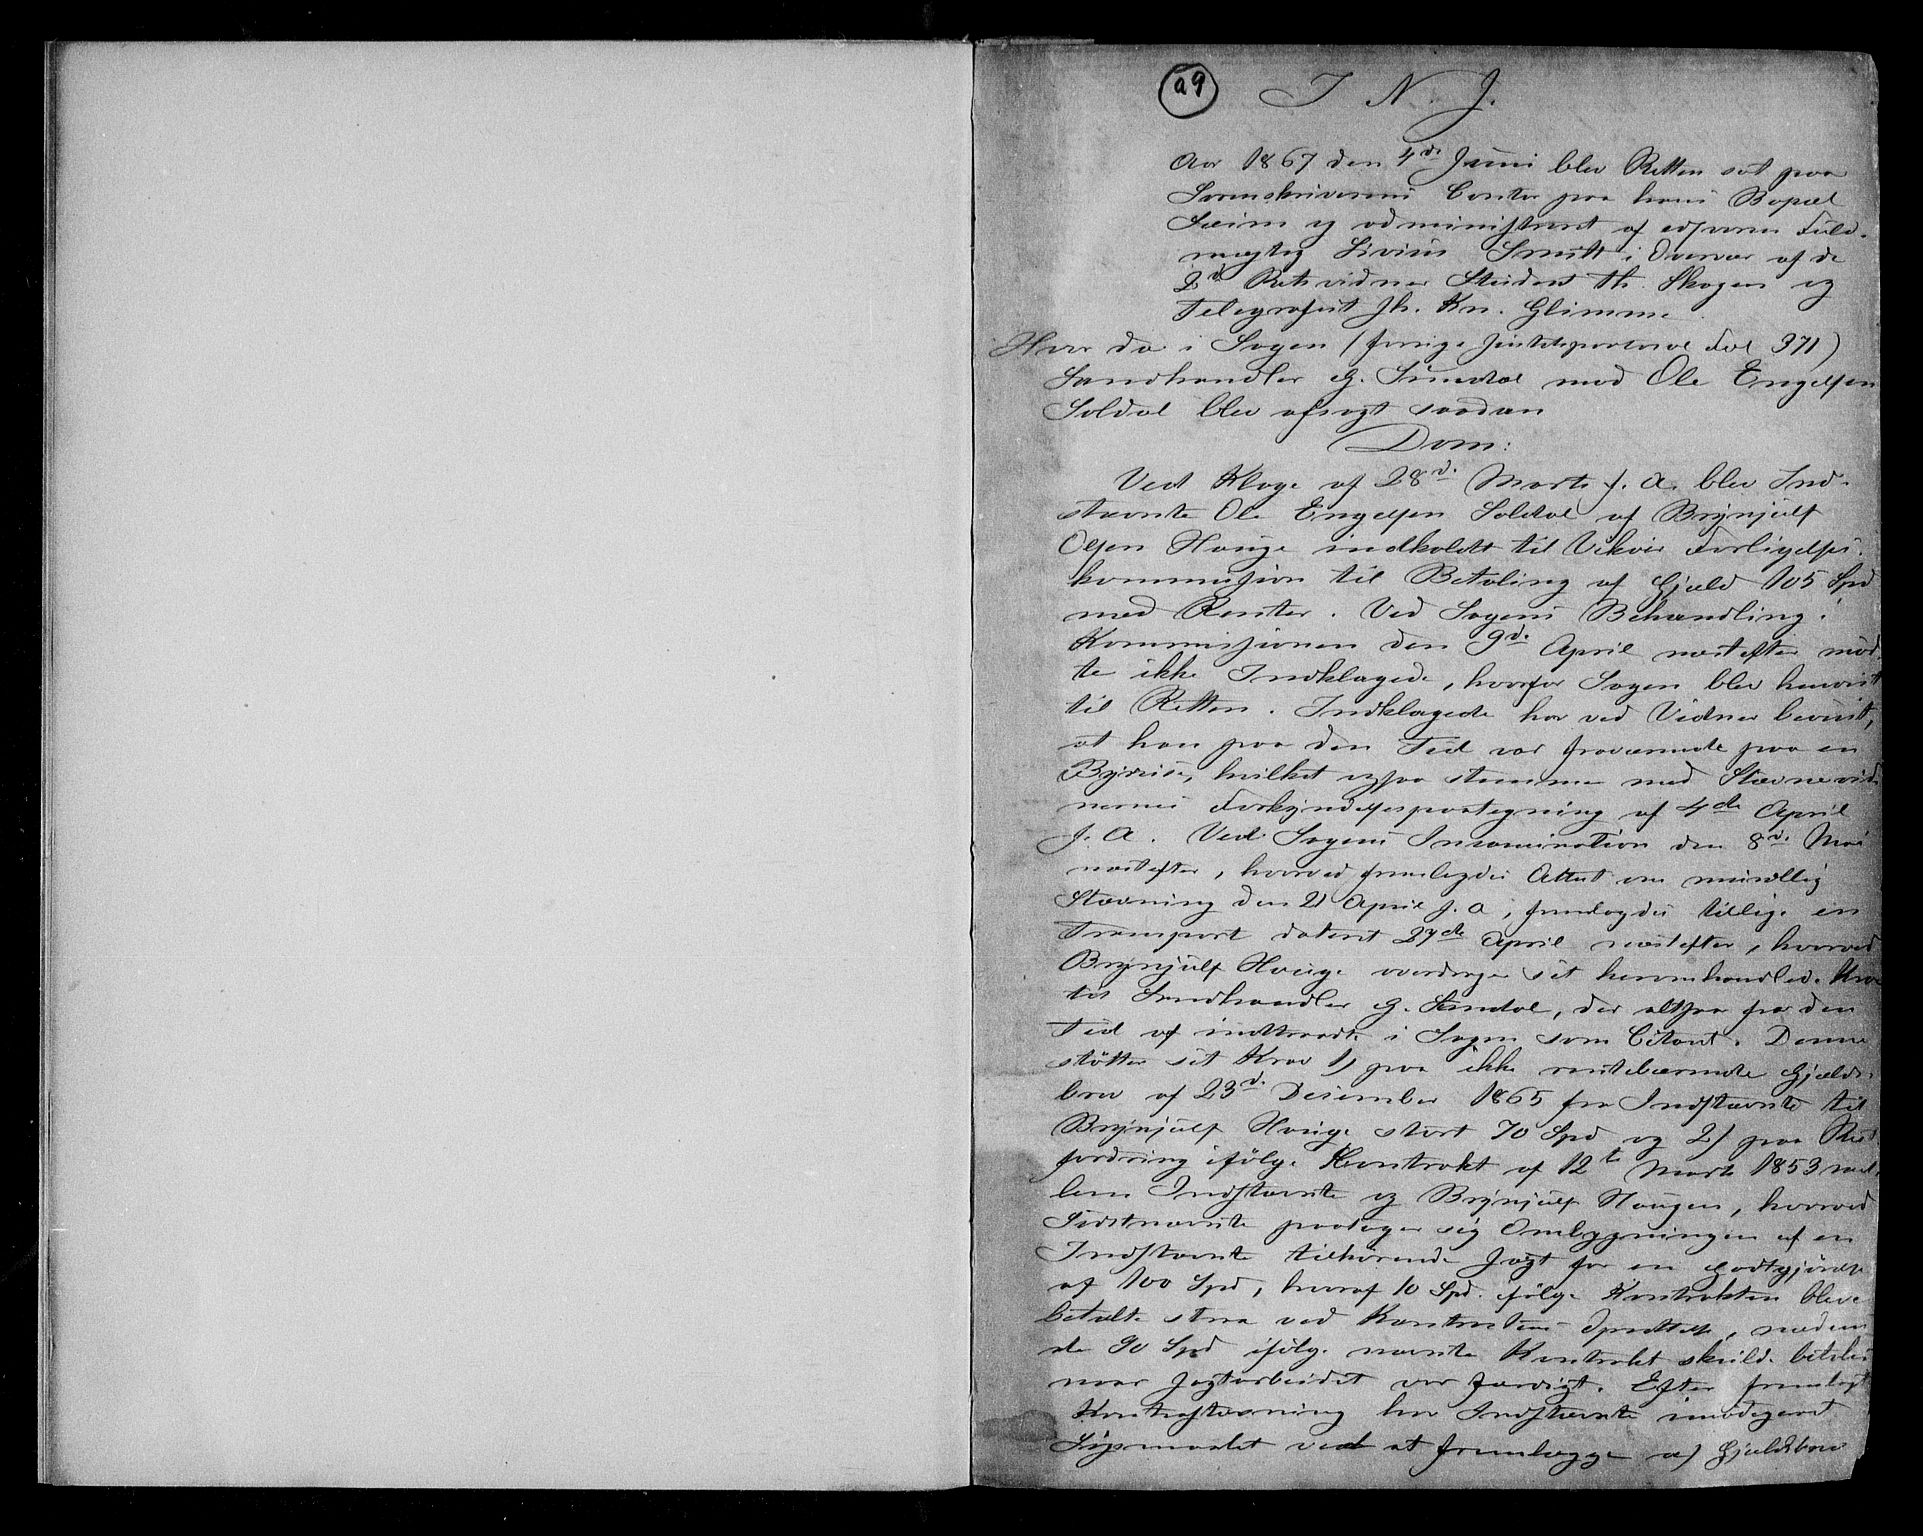 a9
I N. J.
Aar 1867 den 4de Juni blev Retten sat paa
Sorenskriverens Contor paa hans Bopæl
Seim og administreret af edsvoren Fuld-
mægtig Livius Smitt i Overvær af de
2de Retsvidner Student Th. Skogen og
Telegrafist Jh. Kn. Glimme.
Hvor da i Sagen (forrige Justitsprotocol Fol 371)
Landhandler G. Sundal mod Ole Engelsen
Soldal blev afsagt saadan
Dom:
Ved Klage af 28d. Marts f. A. blev Ind-
stævnte Ole Engelsen Soldal af Brynjulf
Olsen Hauge indkaldt til Vikør Forligelses-
kommission til Betaling af Gjæld 105 Spd
med Renter. Ved Sagens Behandling i
Kommissionen den 9d. April næstefter mød-
te ikke Indklagede, hvorfor Sagen blev henvist
til Retten. Indklagede har ved Vidner bevist,
at han paa den Tid var fraværende paa en
Byreise, hvilket ogsaa stemmer med Stævnevid-
nernes Forkyndelsespaategning af 4de April
f. A. Ved Sagens Incamination den 8d. Mai
næstefter, hvorved fremlagdes Attest om mindelig
Stævning den 21 April f. A, fremlagdes tillige en
Transport dateret 27de April næstefter, hvorved
Brynjulf Hauge overdrager sit heromhandlede Krav
til Landhandler G. Sundal, der altsaa fra den
Tid af indtraadte i Sagen som Citant. Denne
støtter sit Krav 1) paa ikke rentebærende Gjælds-
brev af 23d. Desember 1865 fra Indstævnte til
Brynjulf Hauge stort 70 Spd og 2) paa Rest-
fordring ifølge Kontrakt af 12te Marts 1853 mel-
lem Indstævnte og Brynjulf Haugen, hvorved
Sidstnævnte paatager sig Ombygningen af en
Indstævnte tilhørende Jagt for en Godtgjørelse
af 100 Spd, hvoraf 10 Spd. ifølge Kontrakten bleve
betalte strax ved Kontraktens Oprettelse, medens
de 90 Spd ifølge nævnte Kontrakt skulde betales
naar Jagtarbeidet var færdigt. Efter fremlagt
Kontrastævning har Indstævnte imødegaaet
Søgsmaalet ved at fremlægge a) Gjeldsbrev